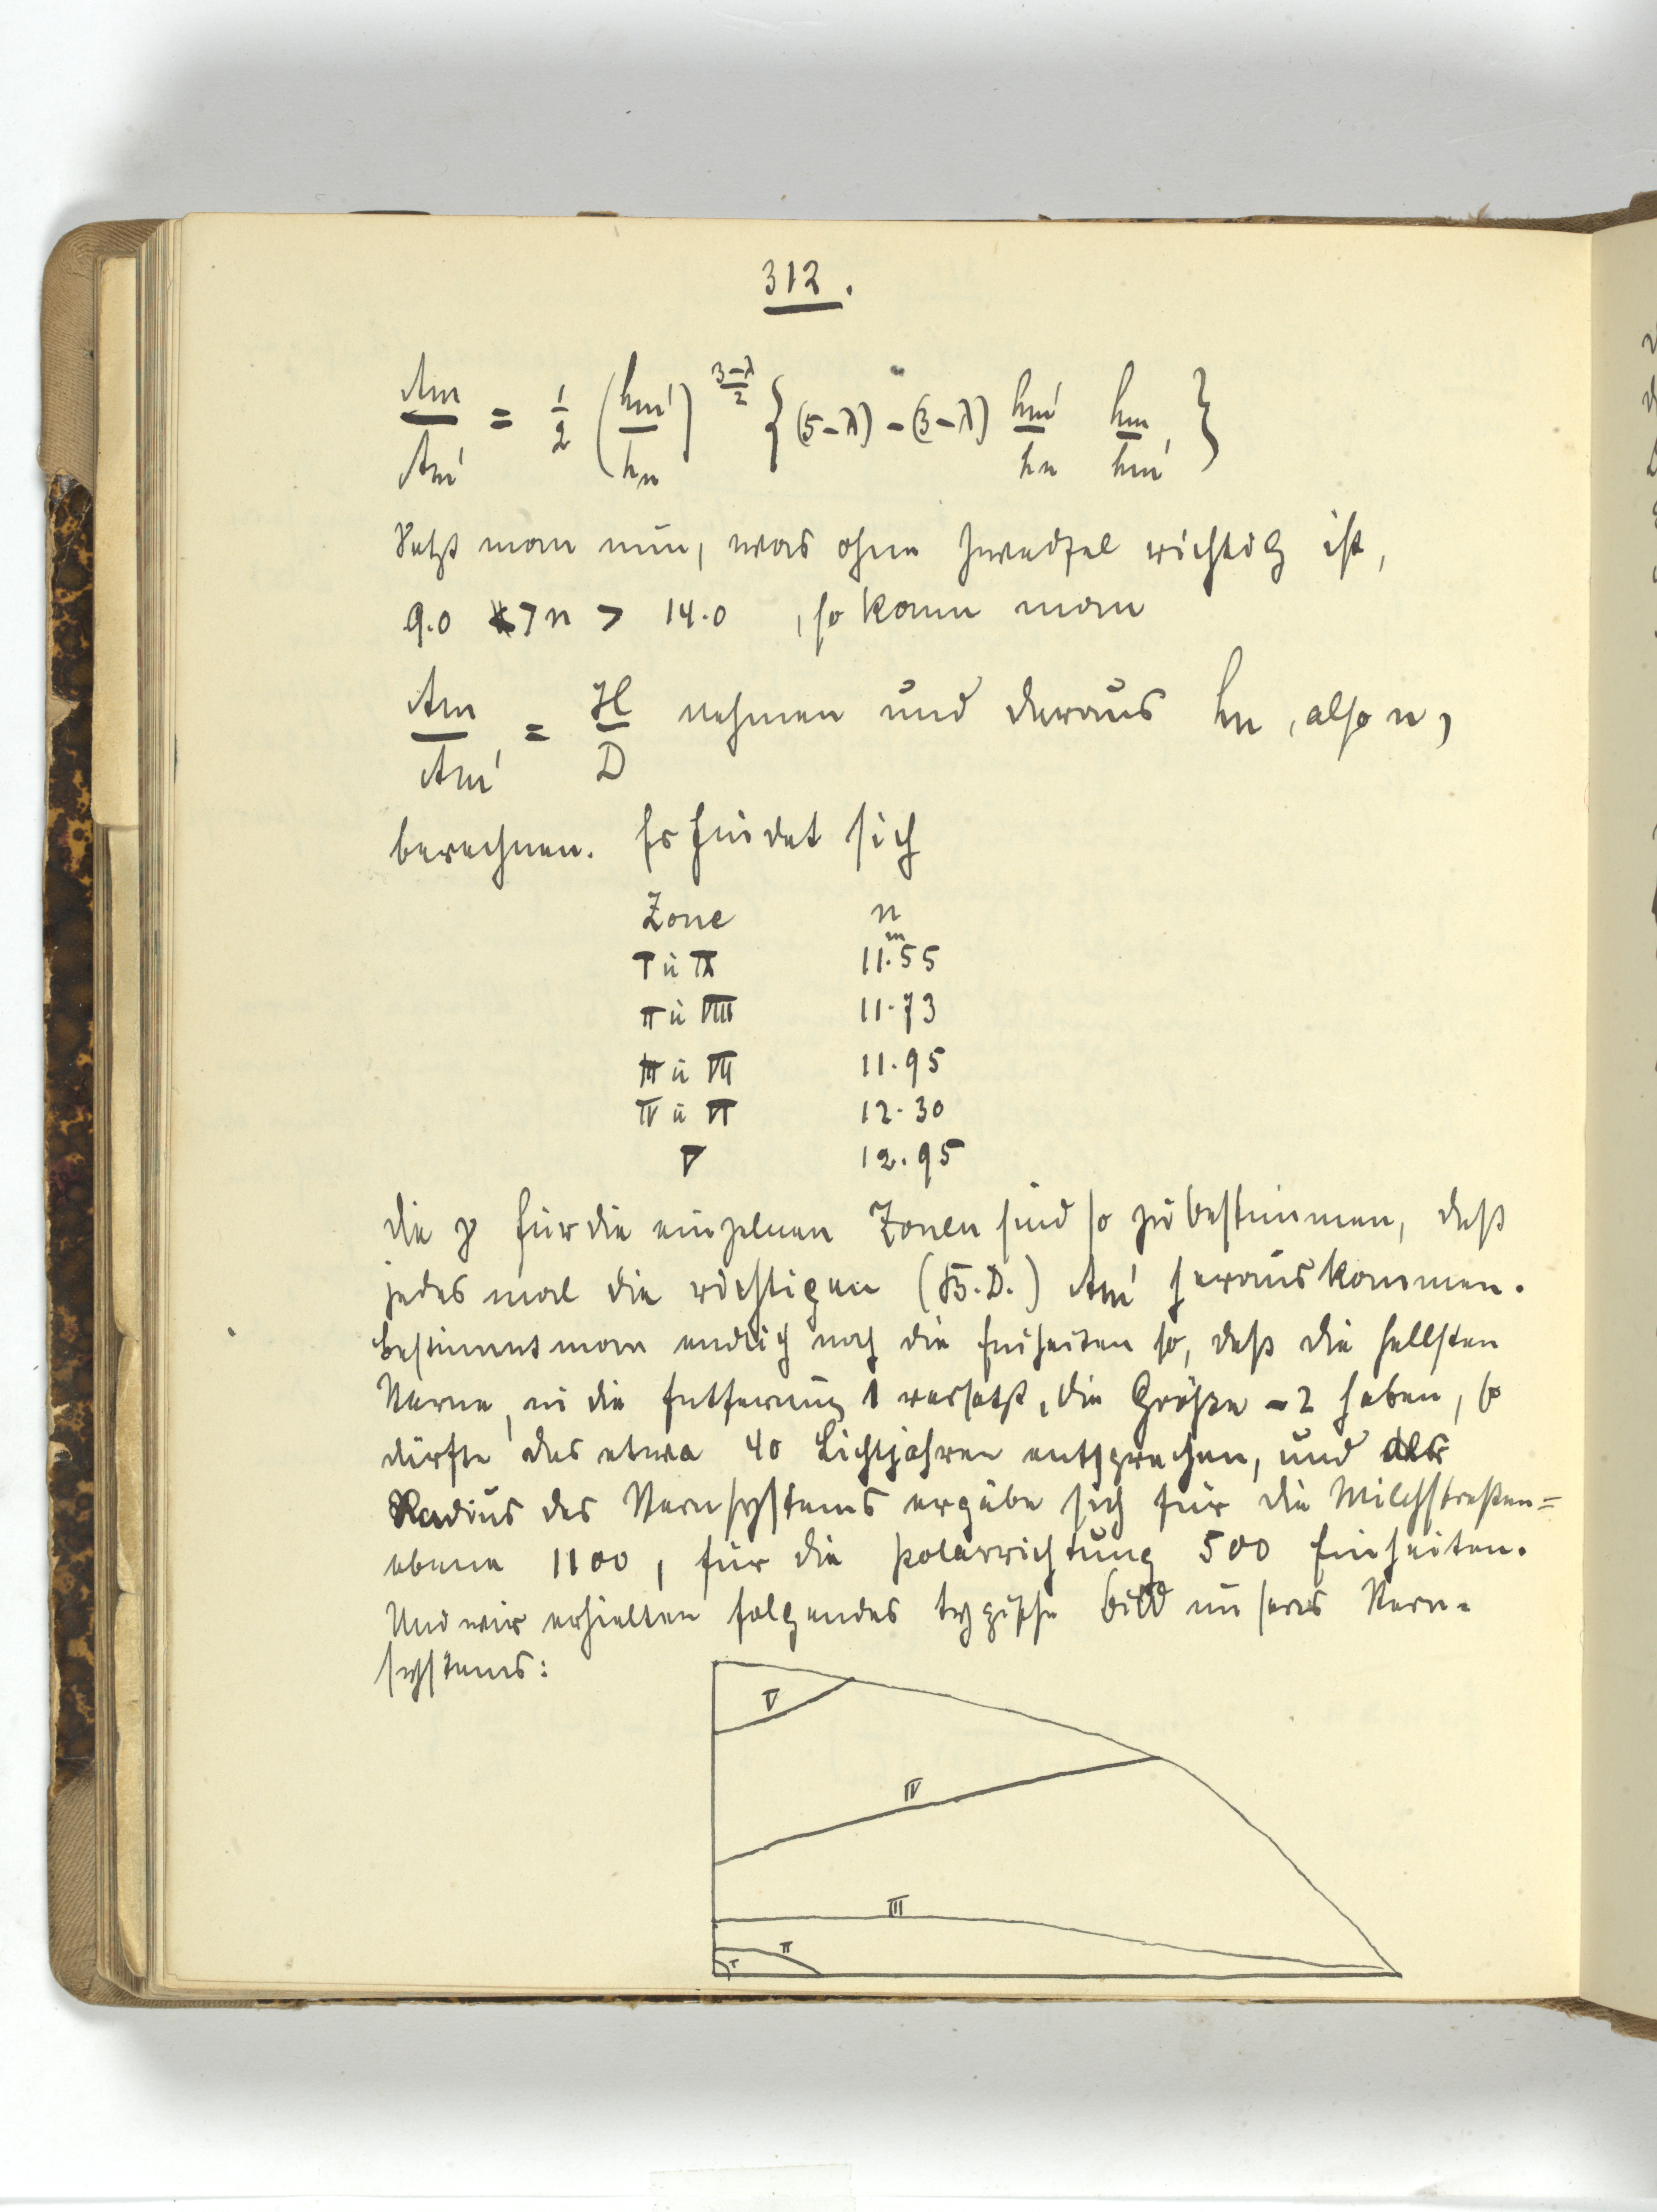 312.
Am/Am' = 1/2 (hm'/hn)^((3-λ)/2) {(5-λ) - (3-λ) hm'/hn hm/hm'}
Setzt man nun, was ohne Zweifel richtig ist,
9.0 > n > 14.0, so kann man
Am/Am' = H/D nehmen und daraus hn, also n,
berechnen. Es findet sich
Zone n
I u IX 11.55 m
II u VIII 11.73
III u VII 11.95
IV u VI 12.30
V 12.95
Die γ für die einzelnen Zonen sind so zu bestimmen, daß
jedesmal die richtigen (B.D.) Am' herauskommen.
Bestimmt man endlich noch die Einheiten so, daß die hellsten
Sterne, in die Entfernung 1 versetzt, die Größe -2 haben, so
dürfte das etwa 40 Lichtjahren entsprechen, und der
Radius des Sternsystems ergäbe sich für die Milchstraßen=
ebene 1100, für die Polarrichtung 500 Einheiten.
Und wir erhielten folgendes typische Bild unseres Stern=
systems:
V
IV
III
II
I